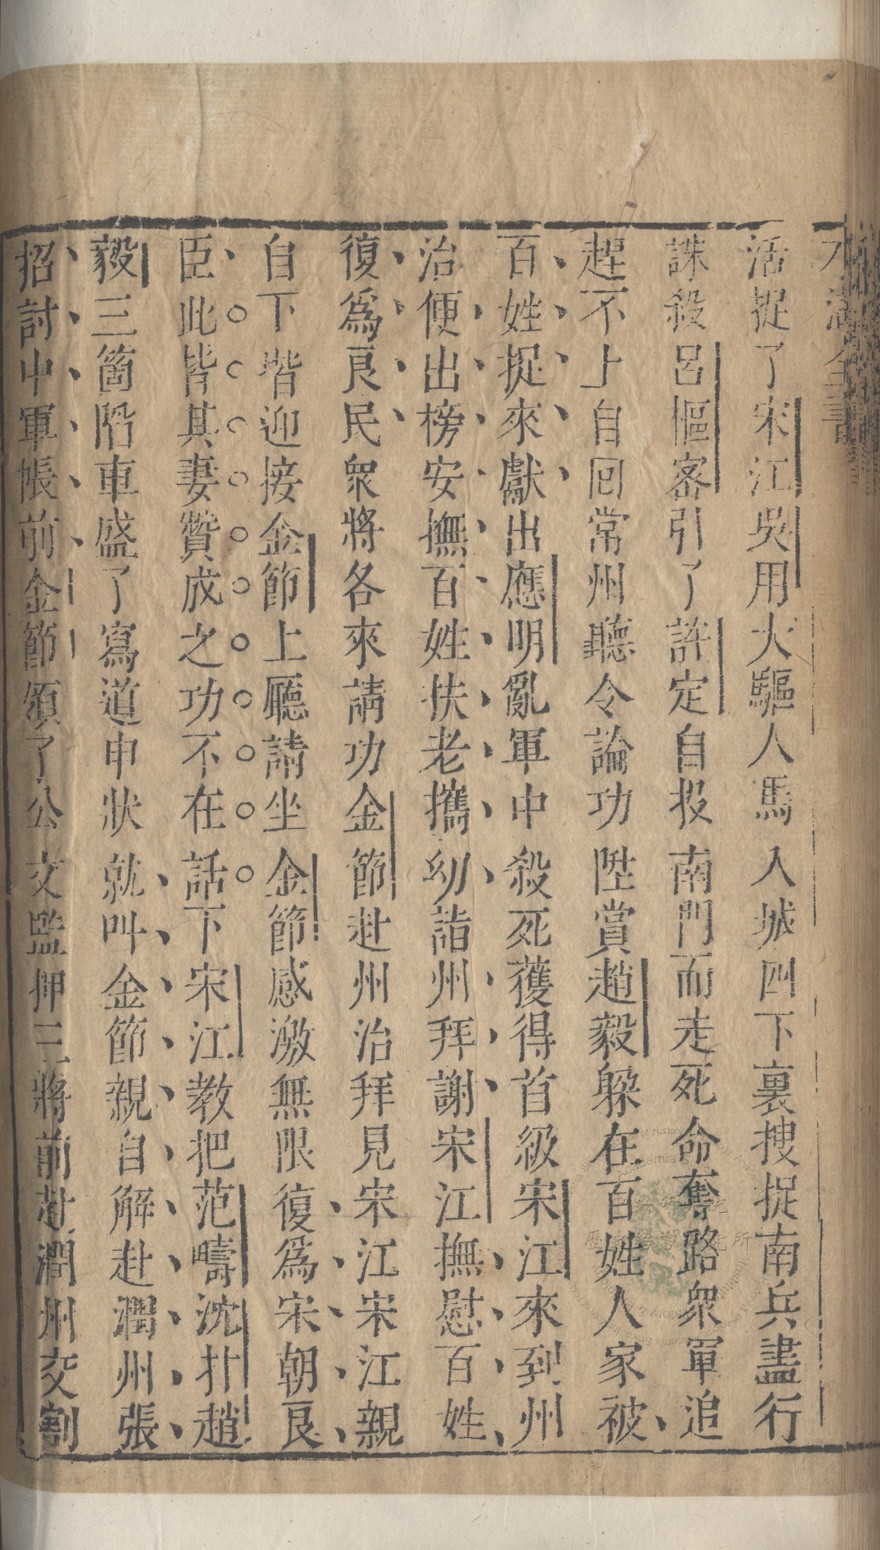 水滸全書
活捉了宋江吳用大驅人馬入城四下裏搜捉南兵盡行
誅殺呂樞密引了許定自投南門而走死命奪路衆軍追
趕不上自回常州聽令論功陞賞趙毅躱在百姓人家被
百姓捉來獻出應明亂軍中殺死獲得首級宋江來到州
治便出榜安撫百姓扶老攜幼詣州拜謝宋江撫慰百姓
復爲良民衆將各來請功金節赴州治拜見宋江宋江親
自下堦迎接金節上廳請坐金節感激無限復爲宋朝良
臣此皆其妻贊成之功不在話下宋江教把范疇沈抃趙
毅三箇陷車盛了寫道申狀就叫金節親自解赴潤州張
招討中軍帳前金節領了公文監押三將前赴潤州交割